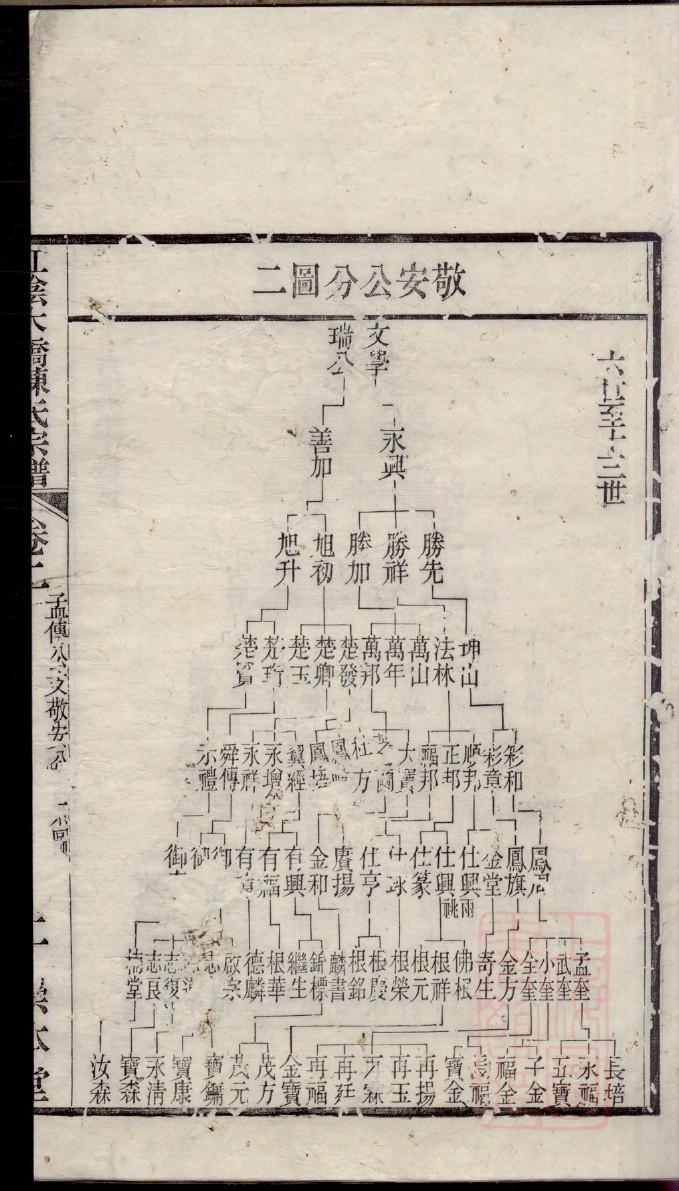 敬安公分圖二
六世至十三世
文學
瑞公
永興
善加
勝先
勝祥
勝加
旭初
旭升
坤山
法林
萬山
萬年
萬邦
楚發
楚卿
楚玉
楚珩
楚寶
彩和
彩章
順邦
正邦
福邦
大寶
蘭
杜方
鳳
鳳梧
翼經
永增
永祥
舜傳
示禮
鳳
鳳旗
金堂
仕興 兩
仕興 祧
仕篆
仕
仕亨
賡揚
金和
有興
有福
有
御
御
御
孟奎
武奎
小奎
全奎
金方
奇生
佛根
根祥
根元
根榮
根慶
根銘
麟書
錦標
繼生
根華
德麟
啟宗
志
志復
志良
瑞堂
長培
永福
五寶
子金
福金
長福
寶金
再揚
再玉
再霖
再廷
再福
金寶
茂方
茂元
寶鏞
寶康
永清
寶森
汝森
江陰大橋陳氏宗譜
卷十二
孟傳公 文敬安公